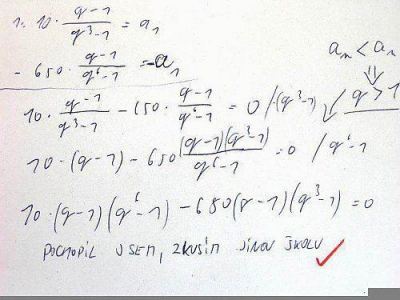 1. 10 · (q-1)/(q³-1) = a₁
- 650 · (q-1)/(q⁶-1) = -a₁
aₙ < aₙ
⇓
q > 1
10 · (q-1)/(q³-1) - 650 · (q-1)/(q⁶-1) = 0 / · (q³-1)
10 · (q-1) - 650 (q-1)(q³-1)/(q⁶-1) = 0 / q⁶-1
10 · (q-1)(q⁶-1) - 650(q-1)(q³-1) = 0
POCHOPIL JSEM, ZKUSÍM JINOU ŠKOLU ✓